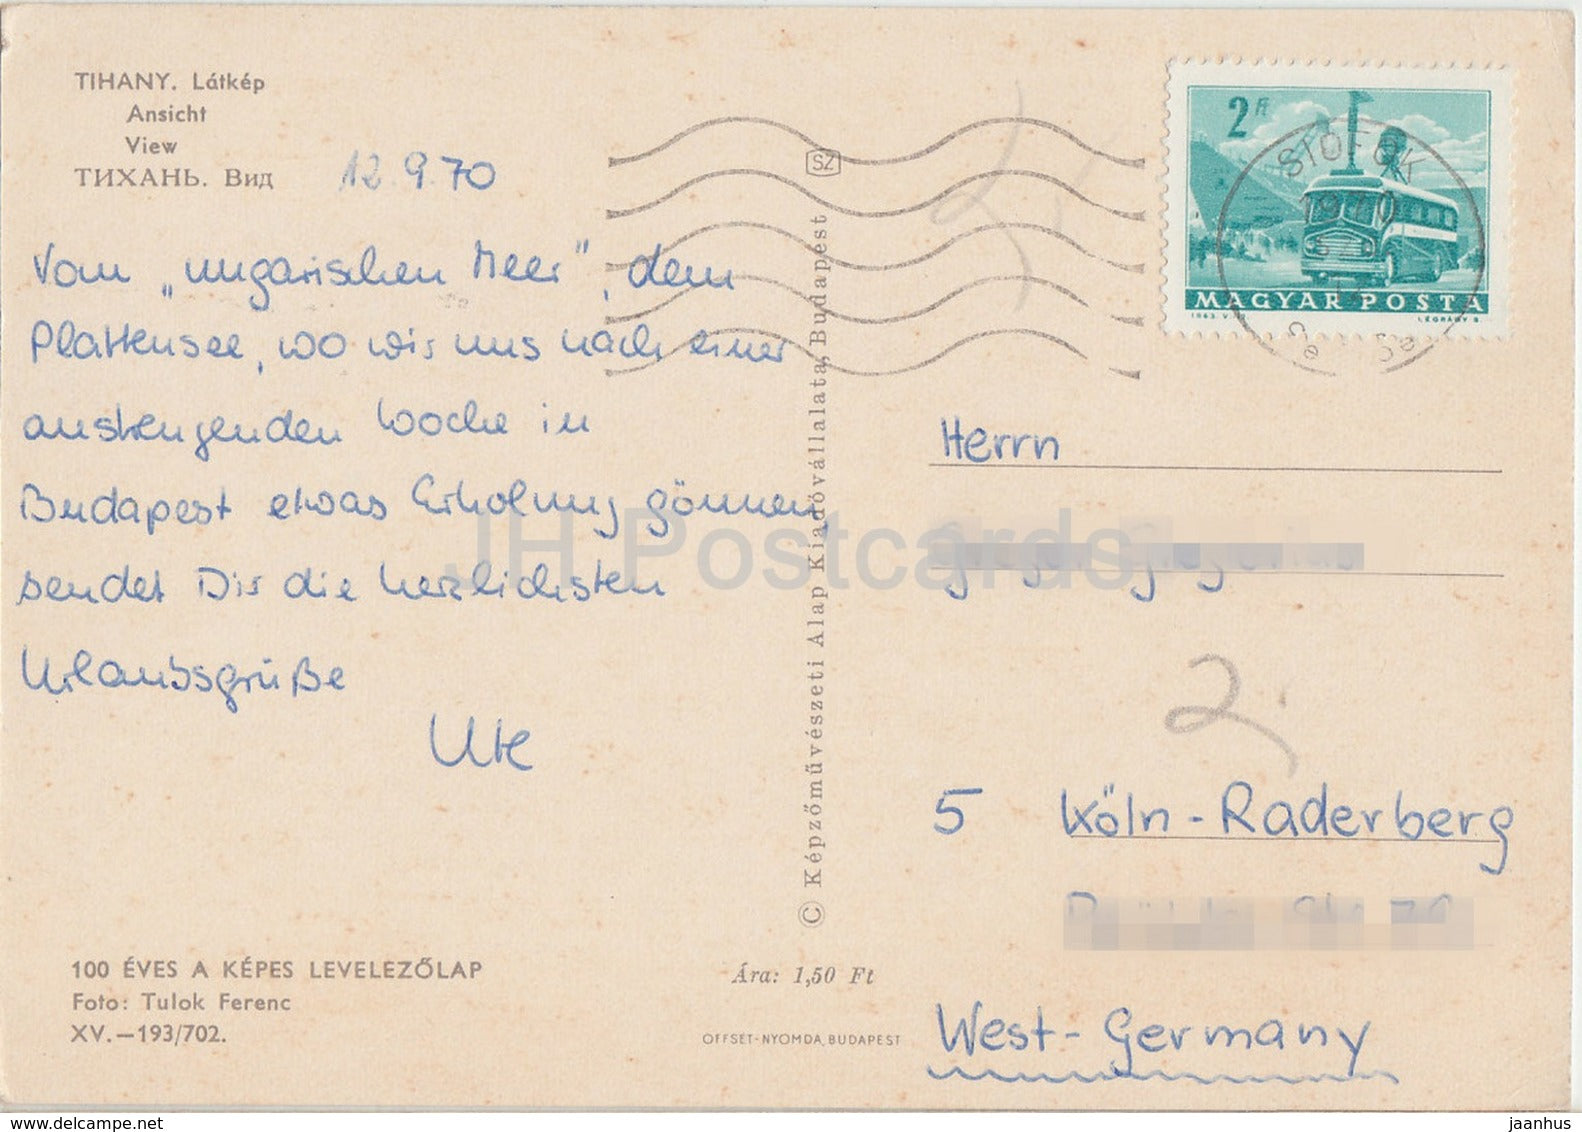 TIHANY. Látkép
Ansicht
View
ТИХАНЬ. Вид
12.9.70
Vom „ungarischen Meer", dem
Plattensee, wo wir uns nach einer
anstrengenden Woche in
Budapest etwas Erholung gönnen,
sendet Dir die herzlichsten
Urlaubsgrüße
Ute
100 ÉVES A KÉPES LEVELEZŐLAP
Foto: Tulok Ferenc
XV.—193/702.
SZ
© Képzőművészeti Alap Kiadóvállalata, Budapest
Ára: 1,50 Ft
OFFSET-NYOMDA, BUDAPEST
2 Ft
SIÓFOK
1970
MAGYAR POSTA
1963 LÉGRÁDY S.
Herrn
2.
5 Köln-Raderberg
West-Germany
JH Postcards
www.delcampe.net
jaanhus